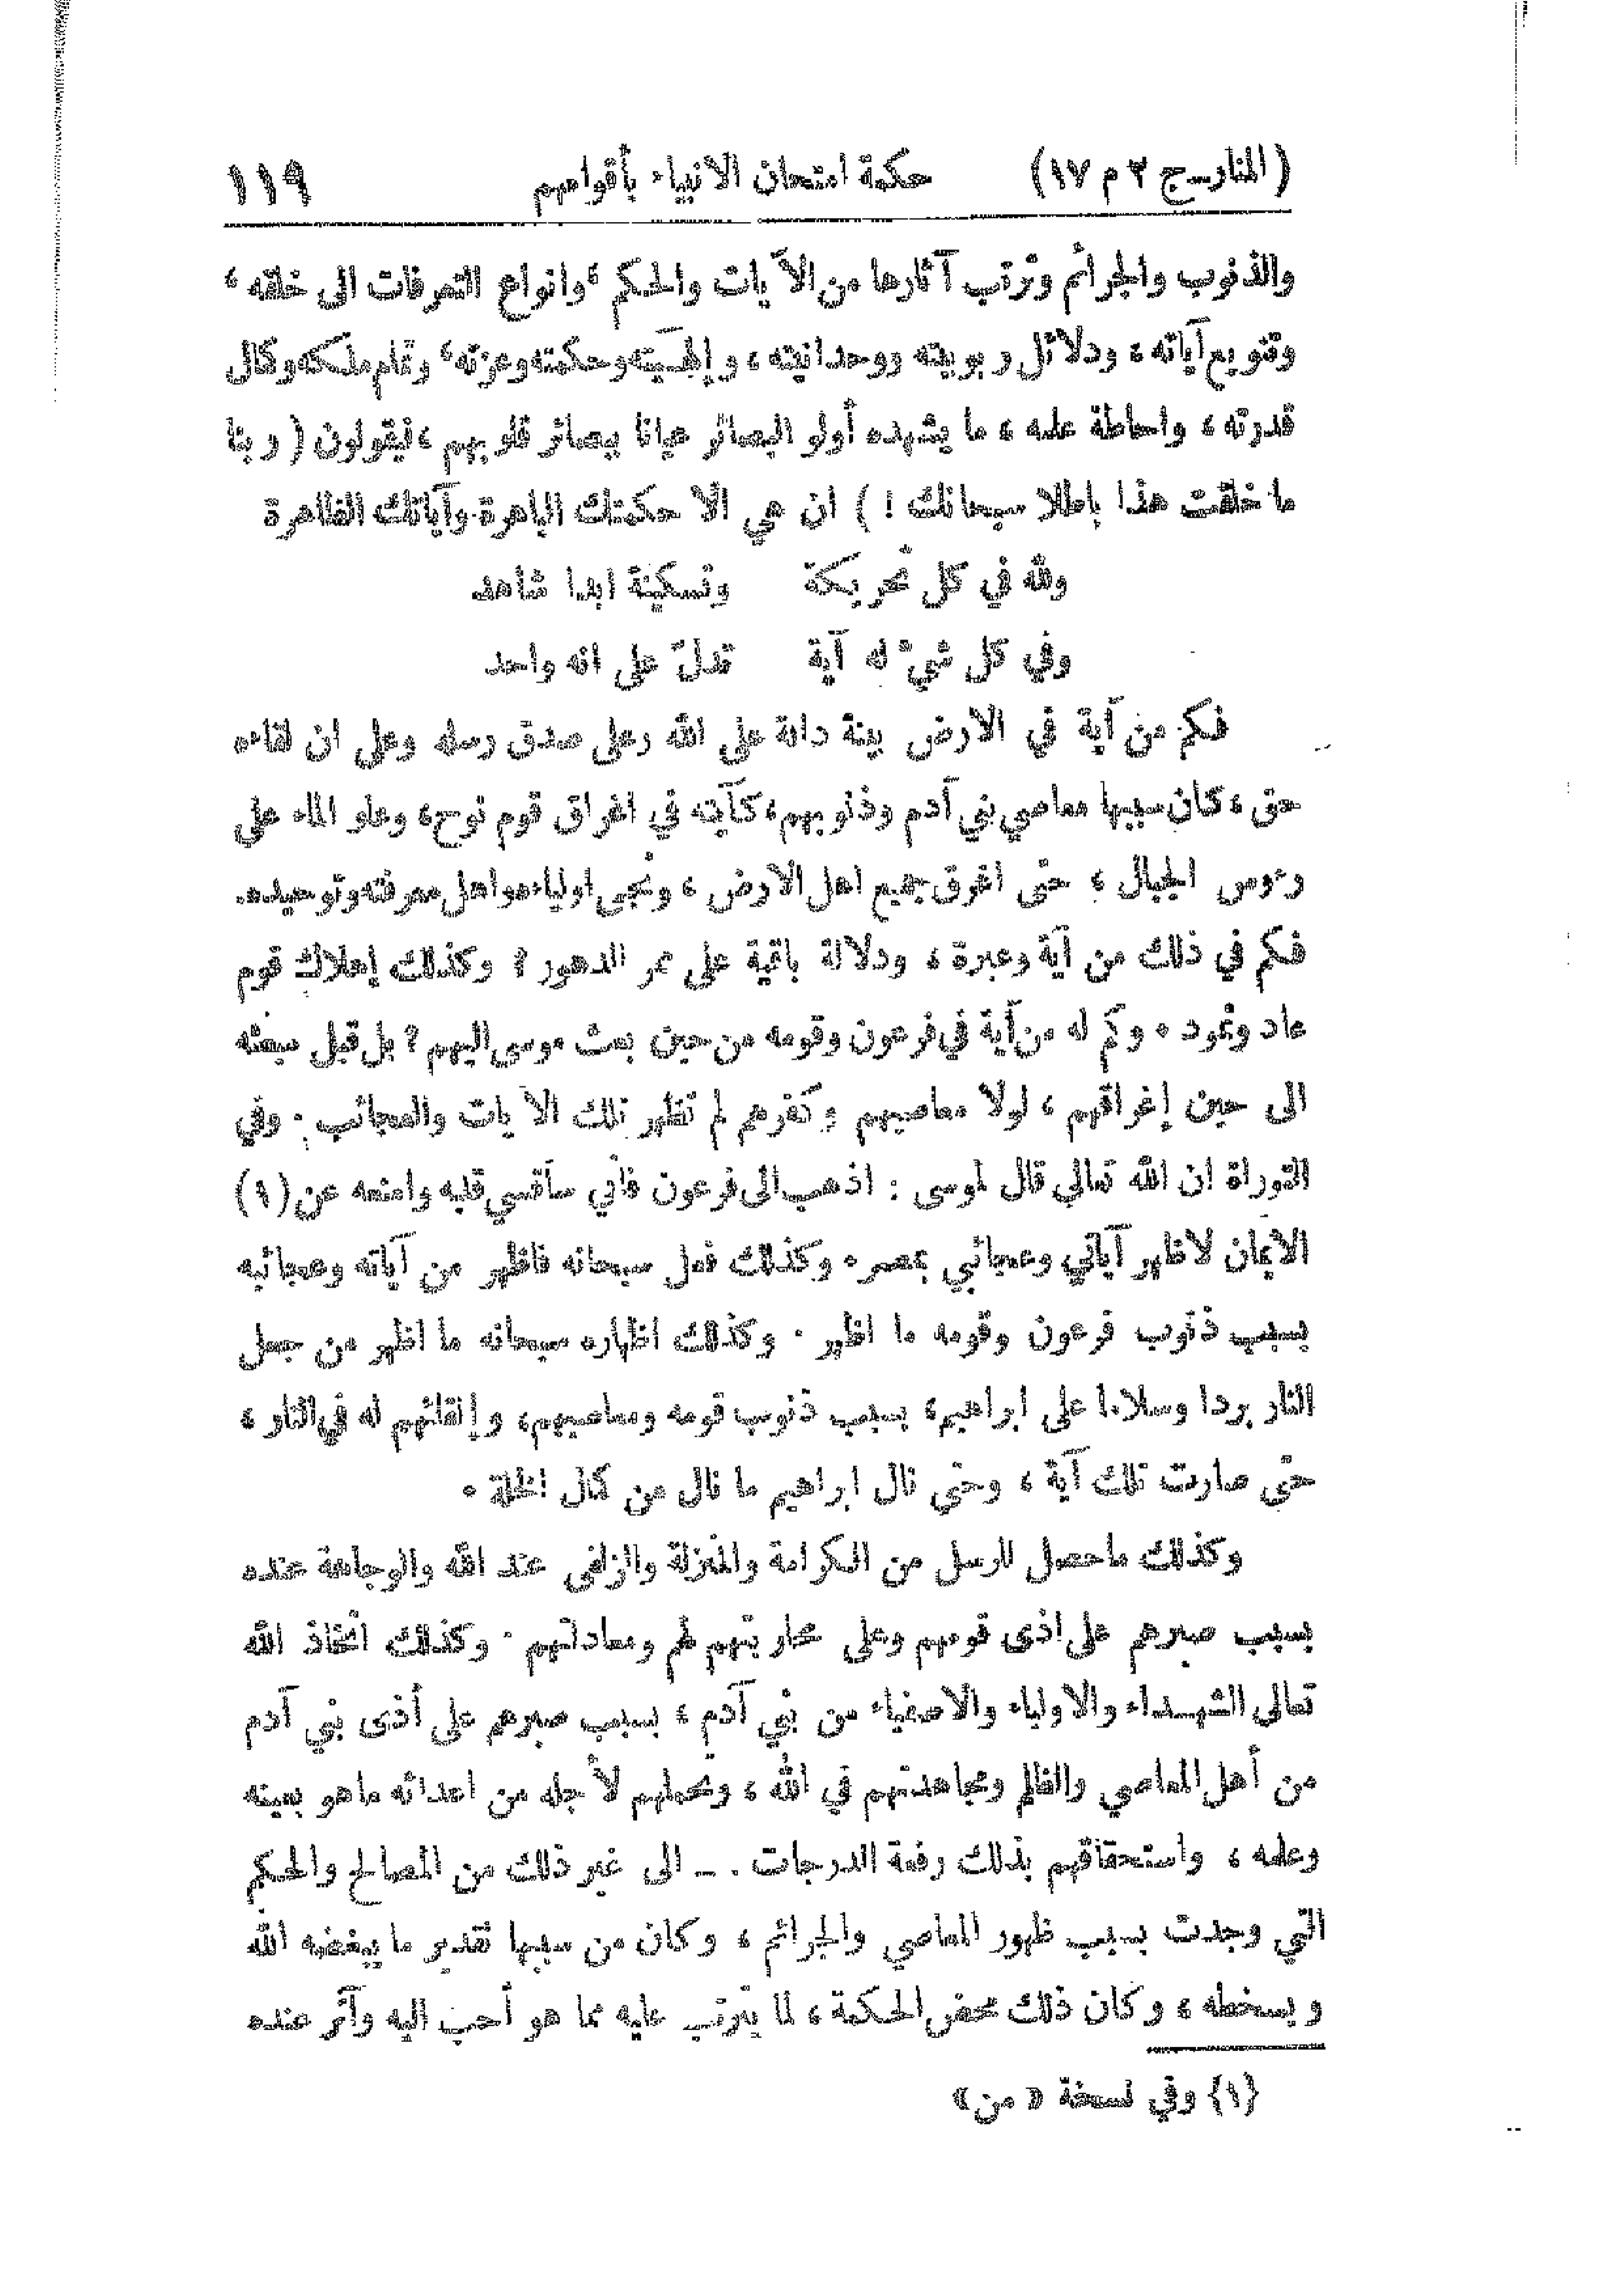 (المنار ـ ج ٢ م ١٧) حكمة امتحان الانبياء بأقوامهم ١١٩
والذنوب والجرائم وترتب آثارها من الآيات والحكم ، وانواع التعرفات الى خلقه ،
وتنويع آياته ، ودلائل ربوبيته ووحدانيته ، وإلهيّته وحكمته وعزته ، وتمام ملكه وكمال
قدرته ، واحاطة علمه ، ما يشهده أولو البصائر عيانا ببصائر قلوبهم ، فيقولون ( ربنا
ما خلقت هذا باطلا سبحانك ! ) ان هي الا حكمتك الباهرة وآياتك الظاهرة
ولله في كل تحريكة وتسكينة ابدا شاهد
وفي كل شيء له آية تدلّ على انه واحد
فكم من آية في الارض بينة دالة على الله وعلى صدق رسله وعلى ان لقاءه
حق ، كان سببها معاصي بني آدم وذنوبهم ، كآيته في اغراق قوم نوح ، وعلو الماء على
رءوس الجبال ، حتى اغرق جميع اهل الارض ، ونجى اولياءه واهل معرفته وتوحيده .
فكم في ذلك من آية وعبرة ، ودلالة باقية على ممر الدهور ؟ وكذلك إهلاك قوم
عاد وثمود . وكم له من آية في فرعون وقومه من حين بعث موسى اليهم ؟ بل قبل مبعثه
الى حين إغراقهم ، لولا معاصيهم وكفرهم لم تظهر تلك الآيات والعجائب . وفي
التوراة ان الله تعالى قال لموسى : اذهب الى فرعون فأني سأقسي قلبه وامنعه عن (١)
الايمان لاظهر آياتي وعجائبي بمصر . وكذلك فعل سبحانه فاظهر من آياته وعجائبه
بسبب ذنوب فرعون وقومه ما اظهر . وكذلك اظهاره سبحانه ما اظهر من جعل
النار بردا وسلاما على ابراهيم ، بسبب ذنوب قومه ومعاصيهم ، وإلقائهم له في النار ،
حتى صارت تلك آية ، وحتى نال ابراهيم ما نال من كمال الخلة .
وكذلك ما حصل للرسل من الكرامة والمنزلة والزلفى عند الله والوجاهة عنده
بسبب صبرهم على اذى قومهم وعلى محاربتهم لهم ومعاداتهم . وكذلك اتخاذ الله
تعالى الشهداء والاولياء والاصفياء من بني آدم ، بسبب صبرهم على أذى بني آدم
من أهل المعاصي والظلم ومجاهدتهم في الله ، وتحملهم لأجله من اعدائه ما هو بعينه
وعلمه ، واستحقاقهم بذلك رفعة الدرجات . ـ الى غير ذلك من المصالح والحكم
التي وجدت بسبب ظهور المعاصي والجرائم ، وكان من سببها تقدير ما يبغضه الله
ويسخطه ، وكان ذلك محض الحكمة ، لما يترتب عليه مما هو أحب اليه وآثر عنده
{١} وفي نسخة « من »